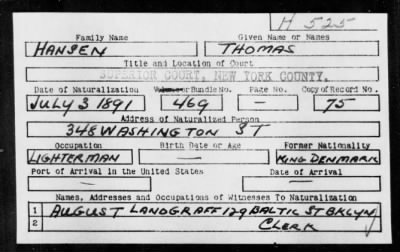 H 525
Family Name Given Name or Names
HANSEN THOMAS
Title and Location of Court
SUPERIOR COURT, NEW YORK COUNTY.
Date of Naturalization Volume or Bundle No. Page No. Copy of Record No.
JULY 3 1891 469 — 75
Address of Naturalized Person
348 WASHINGTON ST
Occupation Birth Date or Age Former Nationality
LIGHTERMAN — KING DENMARK
Port of Arrival in the United States Date of Arrival
— —
Names, Addresses and Occupations of Witnesses To Naturalization
1 AUGUST LANDGRAFF 129 BALTIC ST BKLYN
2 CLERK